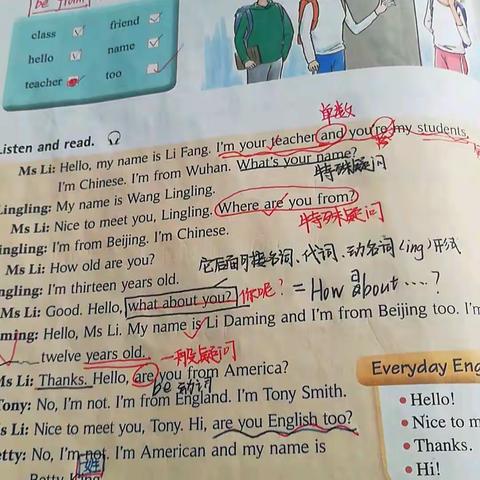 be from
class
friend
hello
name
teacher
too
Listen and read.
单数
Ms Li: Hello, my name is Li Fang. I'm your teacher and you're my students.
I'm Chinese. I'm from Wuhan. What's your name?
特殊疑问
Lingling: My name is Wang Lingling.
Ms Li: Nice to meet you, Lingling. Where are you from?
特殊疑问
Lingling: I'm from Beijing. I'm Chinese.
Ms Li: How old are you?
它后面可接名词、代词、动名词(ing)形式
ngling: I'm thirteen years old.
Ms Li: Good. Hello, what about you? 你呢? = How about ....?
ming: Hello, Ms Li. My name is Li Daming and I'm from Beijing too. I'm
twelve years old. 一般疑问
Ms Li: Thanks. Hello, are you from America?
be动词
Tony: No, I'm not. I'm from England. I'm Tony Smith.
s Li: Nice to meet you, Tony. Hi, are you English too?
etty: No, I'm not. I'm American and my name is
Betty King
姓
Everyday Eng
• Hello!
• Nice to m
• Thanks.
• Hi!